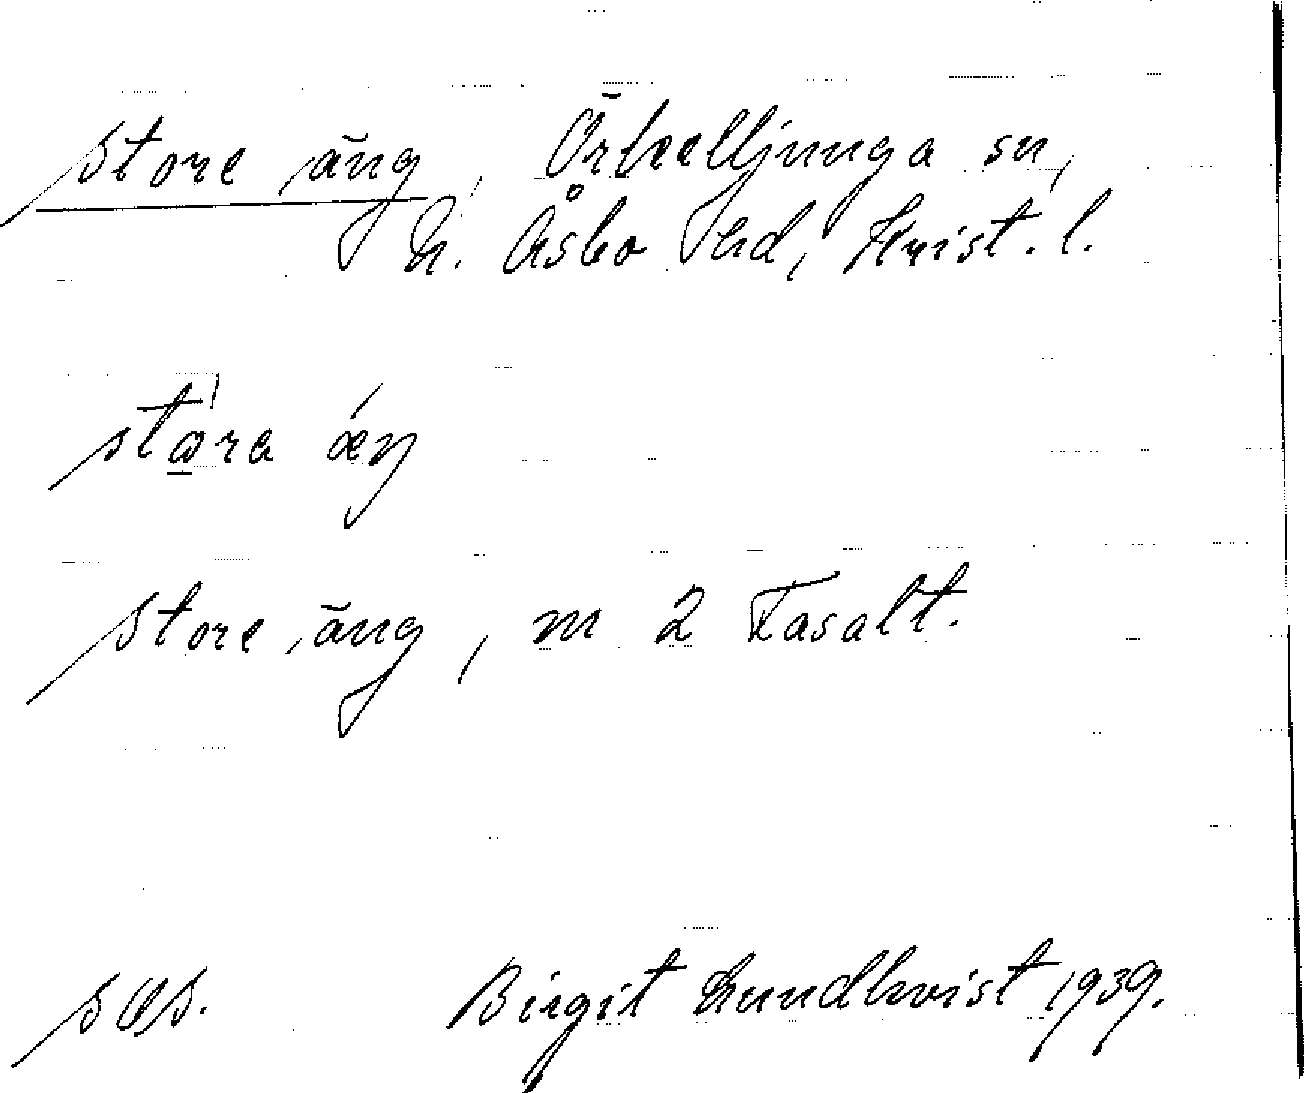 store äng, Örkelljunga sn,
N. Åsbo hd, Krist. l.
store äng, m 2 Fasalt.
Birgit Lundkvist 1939.